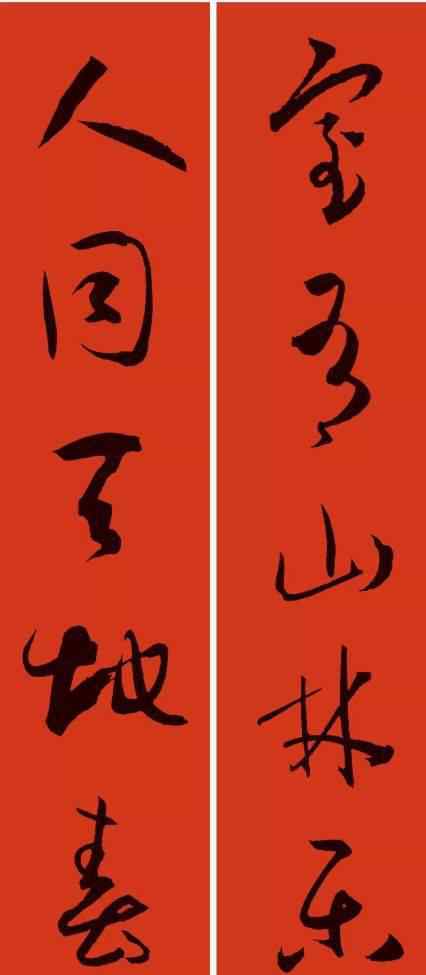 室有山林乐
人同天地春